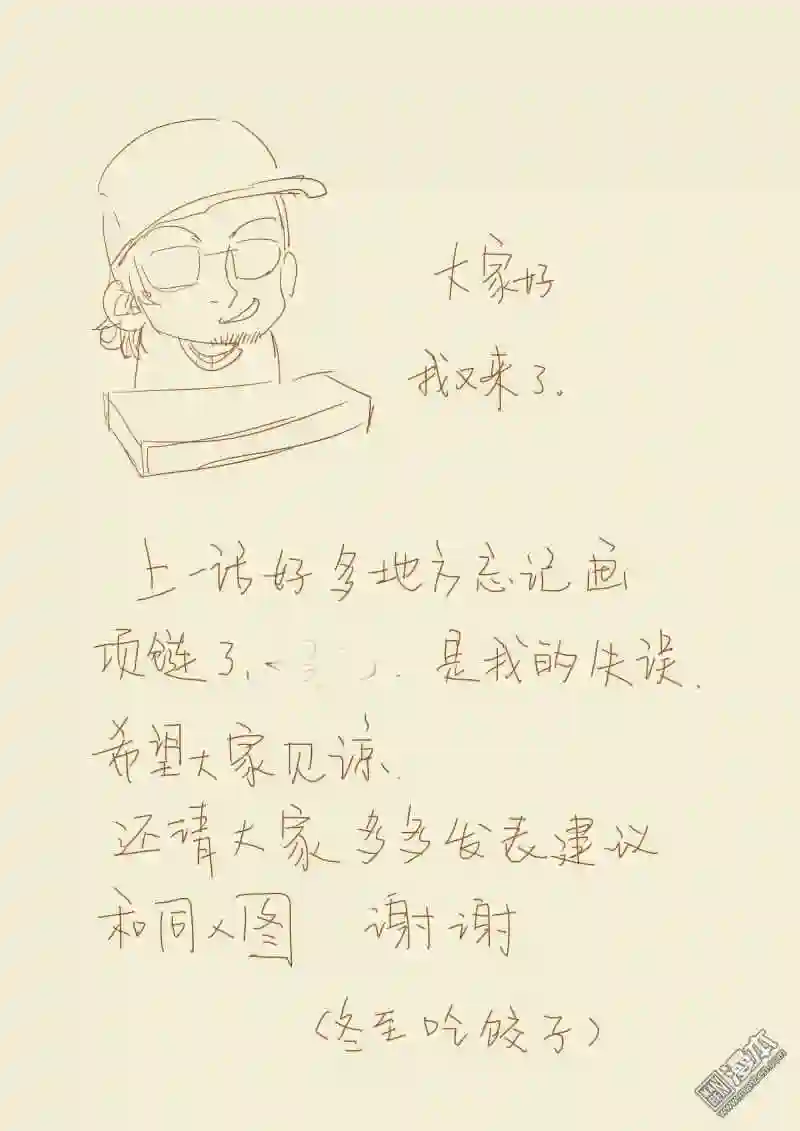 大家好
我又来了.
上一话好多地方忘记画
项链了、是我的失误.
希望大家见谅.
还请大家多多发表建议
和同人图 谢谢
(冬至吃饺子)
MANBEN漫本